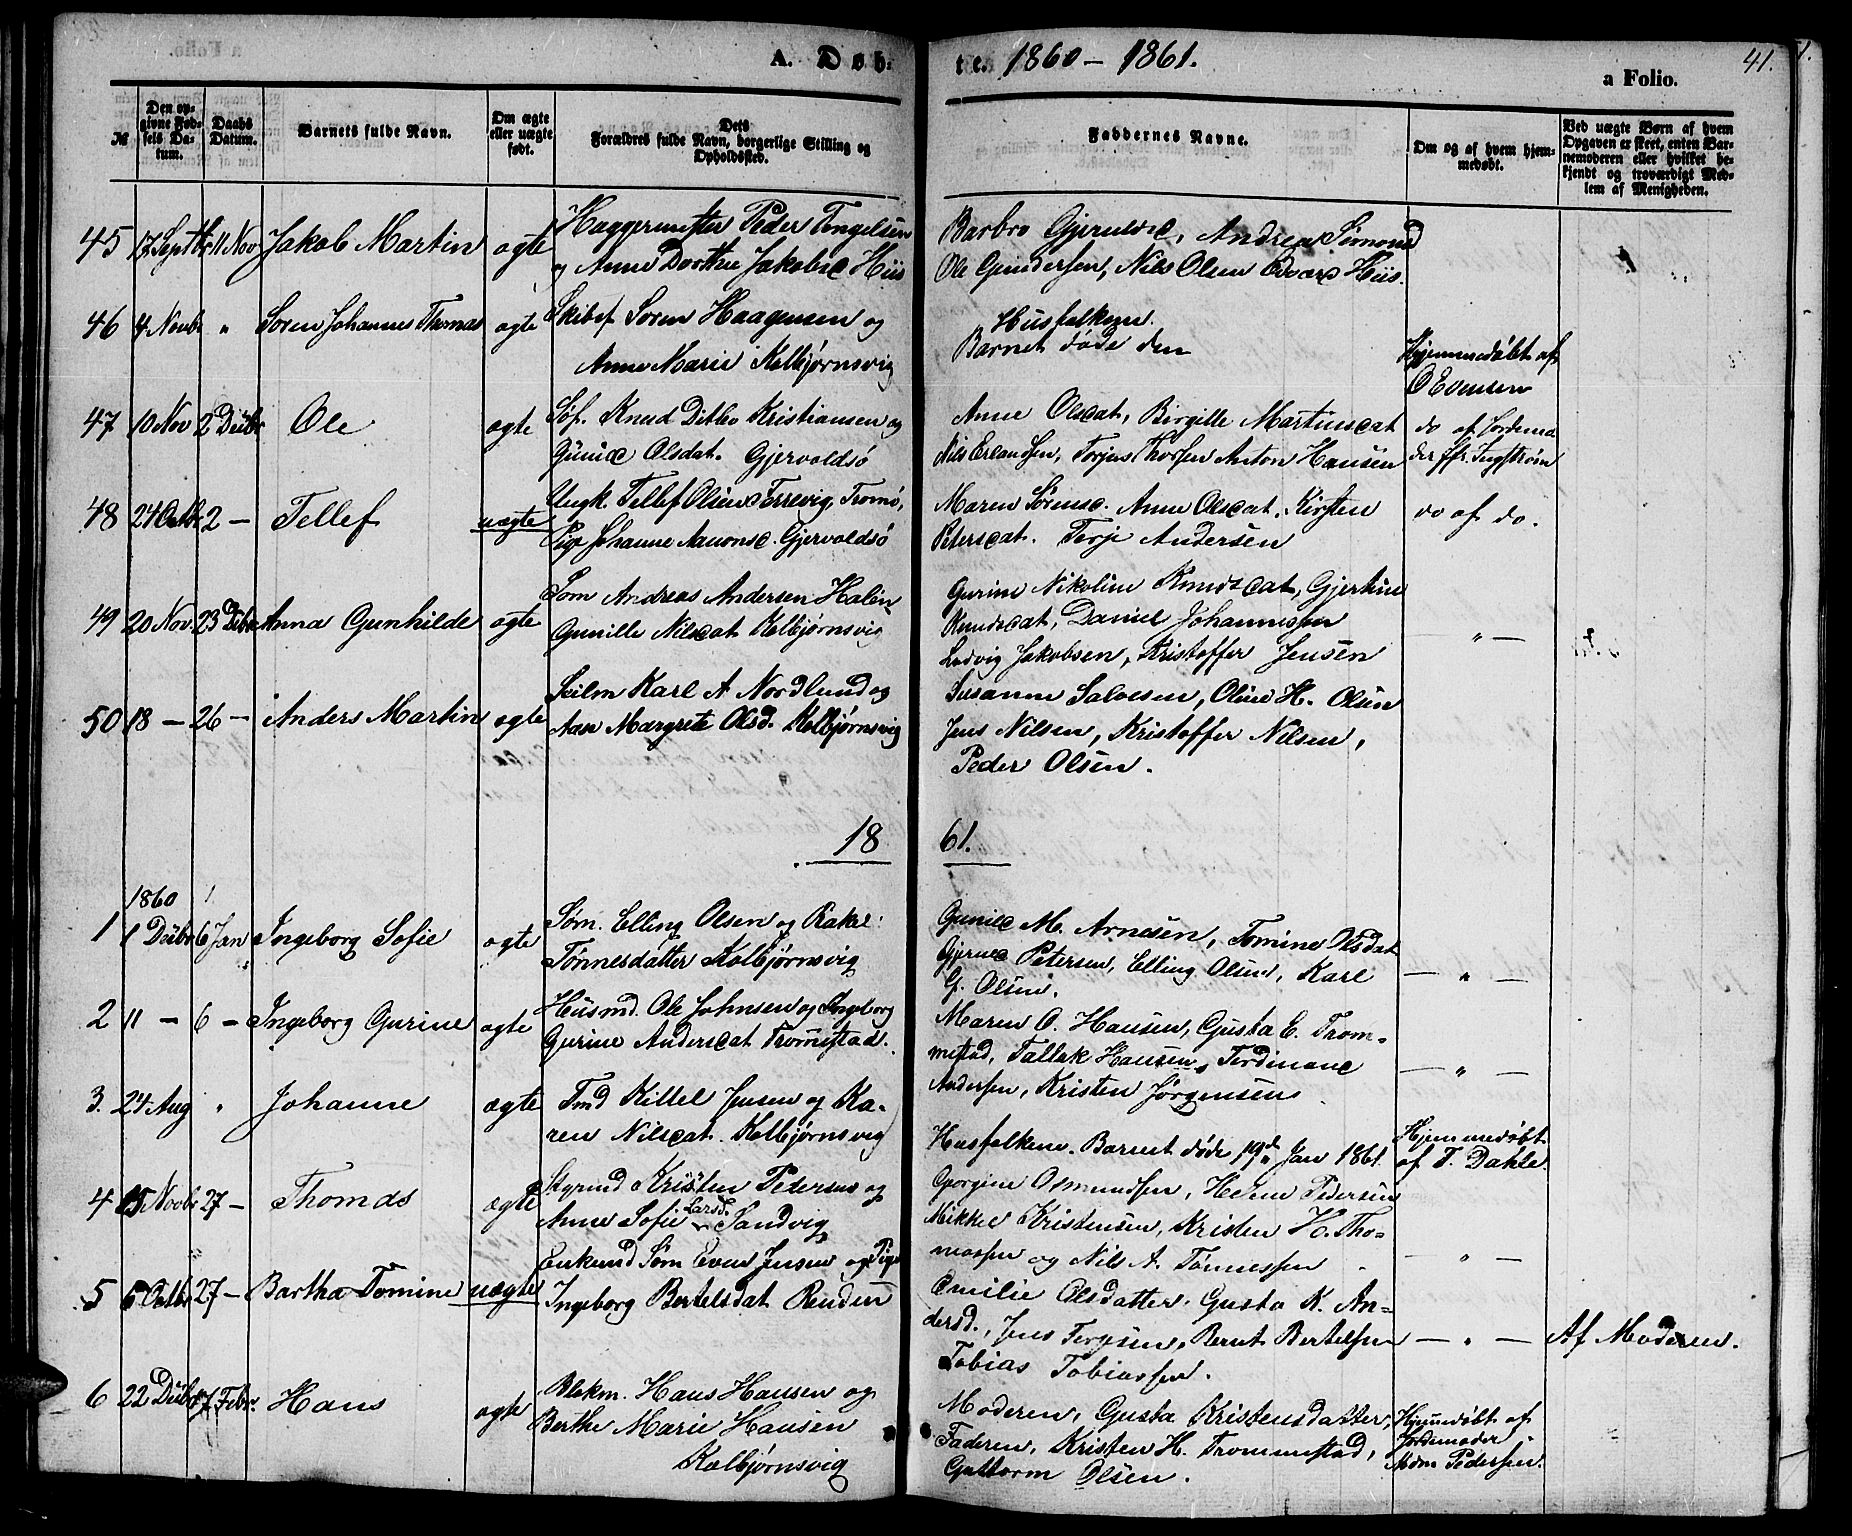 A. Døb-
te. 1860 - 1861.
41.
a Folio.
№
Den op-
givne Fød-
sels Da-
tum.
Daabs
Datum.
Barnets fulde Navn.
Om ægte
eller uægte
født.
Dets
Forældres fulde Navn, borgerlige Stilling og
Opholdssted.
Faddernes Navne.
Om og af hvem hjem-
medøbt.
Ved uægte Børn af hvem
Opgaven er skeet, enten Bar-
nemoderen eller hvilket be-
kjendt og troværdigt Med-
lem af Menigheden.
45 17 Septbr 11 Nov Jakob Martin ægte
Peder Tengelsen
og Anne Dorthea Jakobsd Hiis
Barbro Andrea
Ole Gundersen, Nils Olsen Hiis.
46 4 Novbr " Søren Johannes Thomas ægte
Skibsf Søren Haagensen og
Anne Marie Kolbjørnsvig
Husfolkene.
Barnet døde den
Hjemmedøbt af
O Evensen
47 10 Nov 2 Decbr Ole ægte
Søf. Knud Ditlev Kristiansen og
Olsdat. Gjervoldsø
Anne Olsdat, Birgitte Martinsdat
Nils Erlandsen, Terjus Thorsen Anton Hansen
do af Jordemo
der
48 24 Octbr 2 - Tellef uægte
Ungk. Tellef Olsen Færevig, Tromø,
Pige Johanne Aanonsd. Gjervoldsø
Maren Sørensd. Anne Olsdat. Kirsten
Petersdat. Terje Andersen
do af do.
49 20 Nov. 23 Decbr Anna Gunhilde ægte
Søm Andreas Andersen Holen
Gunille Nilsdat Kolbjørnsvig
Gurine Nikoline Knudsdat, Gjertine
Knudsdat, Daniel Johannessen
Ludvig Jakobsen, Kristoffer Jensen
- " -
50 18 - 26 - Anders Martin ægte
Seilm Karl A Nordlund og
Aase Margrete Olsd. Kolbjørnsvig
Susanne Salvesen, Oline H. Olsen
Jens Nilsen, Kristoffer Nilsen,
Peder Olsen.
18 61.
1860
1 1 Decbr 6 Jan Ingeborg Sofie ægte
Søm. Elling Olsen og Rakel
Tønnesdatter Kolbjørnsvig
M. Arnesen, Tomine Olsdat
Petersen, Elling Olsen, Karl
G. Olsen.
- " -
2 11 - 6 - Ingeborg Gurine ægte
Husmd. Ole Johnsen og Ingeborg
Gurine Andersdat Tromestad.
Maren O. Hansen, Gusta E. Trom-
mestad, Tallak Hansen, Ferdinand
Andersen, Kristen Jørgensen
- " -
3. 24 Aug " Johanne ægte
Tmd Kittel Jensen og Ka-
ren Nilsdat. Kolbjørnsvig
Husfolkene. Barnet døde 19d Jan 1861
Hjemmedøbt
af T. Dahle.
4 15 Novbr 27 - Thomas ægte
Styrmd Kristen Pedersen og
Anne Sofie Larsd. Sandvig
Georgine Osmundsen, Helene Pedersen
Mikkel Kristensen, Kristen H. Tho-
massen og Nils A. Tønnessen
- " -
5 6 Octbr 27 - Bartha Tomine uægte
Enkemd Søm Even Jensen og Pige
Ingeborg Bertelsdat Renden
Emilie Olsdatter, Gusta K. An-
dersd., Jens Tergesen, Bernt Bertelsen
Tobias Tobiassen.
- " - Af Moderen.
6 22 Decbr 17 Febr. Hans ægte
Blokm. Hans Hansen og
Berthe Marie Hansen
Kolbjørnsvig
Moderen, Gusta Kristensdatter,
Faderen, Kristen H. Trommestad,
Guttorm Olsen.
Hjemmedøbt af
Jordemoder
Mdm Pedersen.